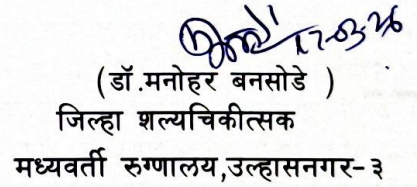 17-03-26
(डॉ.मनोहर बनसोडे )
जिल्हा शल्यचिकीत्सक
मध्यवर्ती रुग्णालय,उल्हासनगर-३